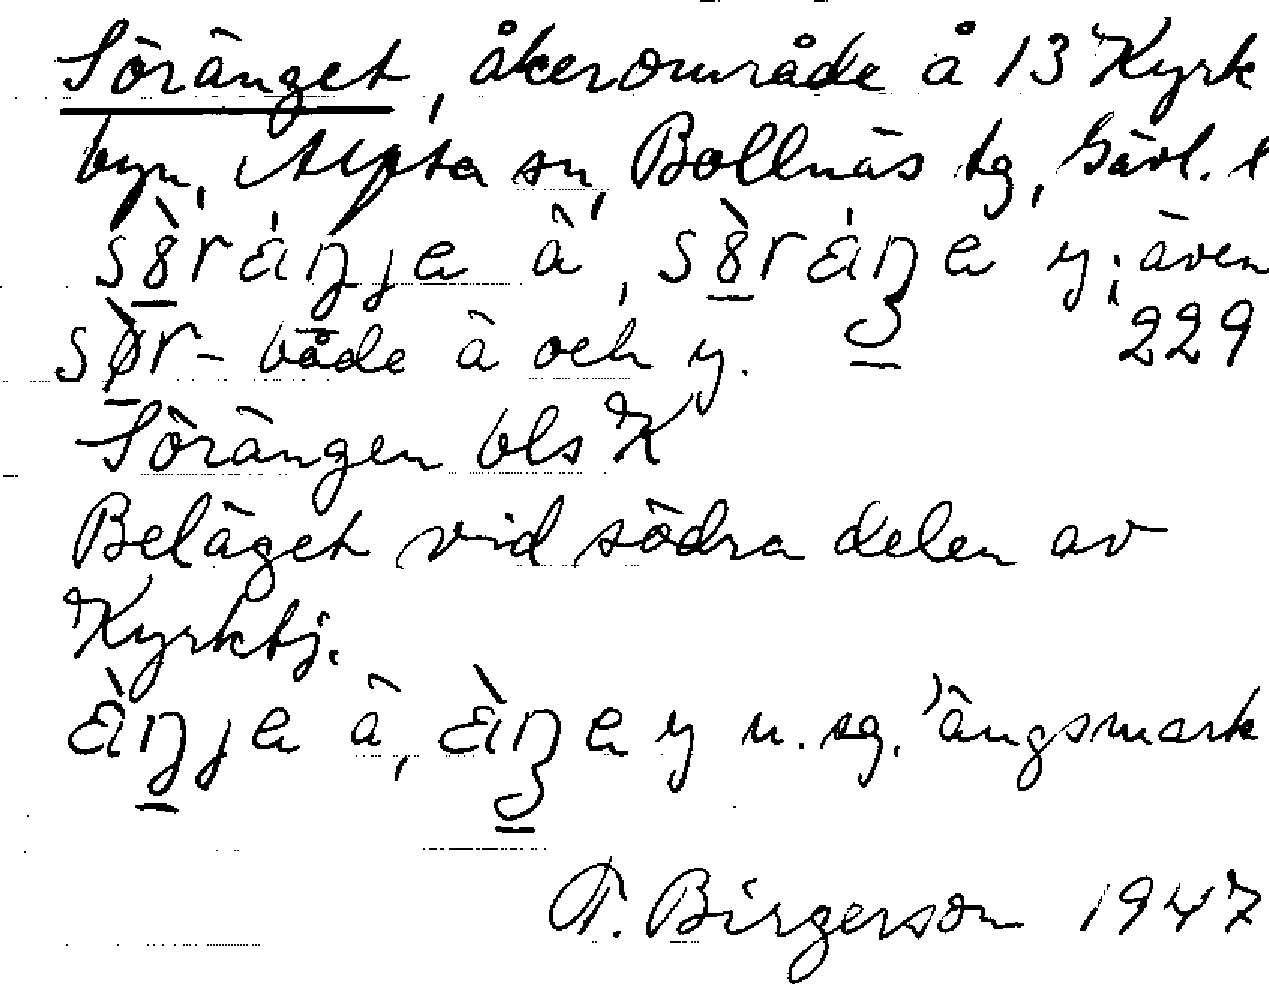 Söränget, åkerområde å 13 Kyrk
byn, Alfta sn, Bollnäs tg, Gävl. l
söräŋje ä, söräŋe y; även
sør- både ä och y. 229
Sörängen bls K
Beläget vid södra delen av
Kyrkbj.
äŋje ä, äŋe y n. sg. 'ängsmark
F. Birgerson 1947